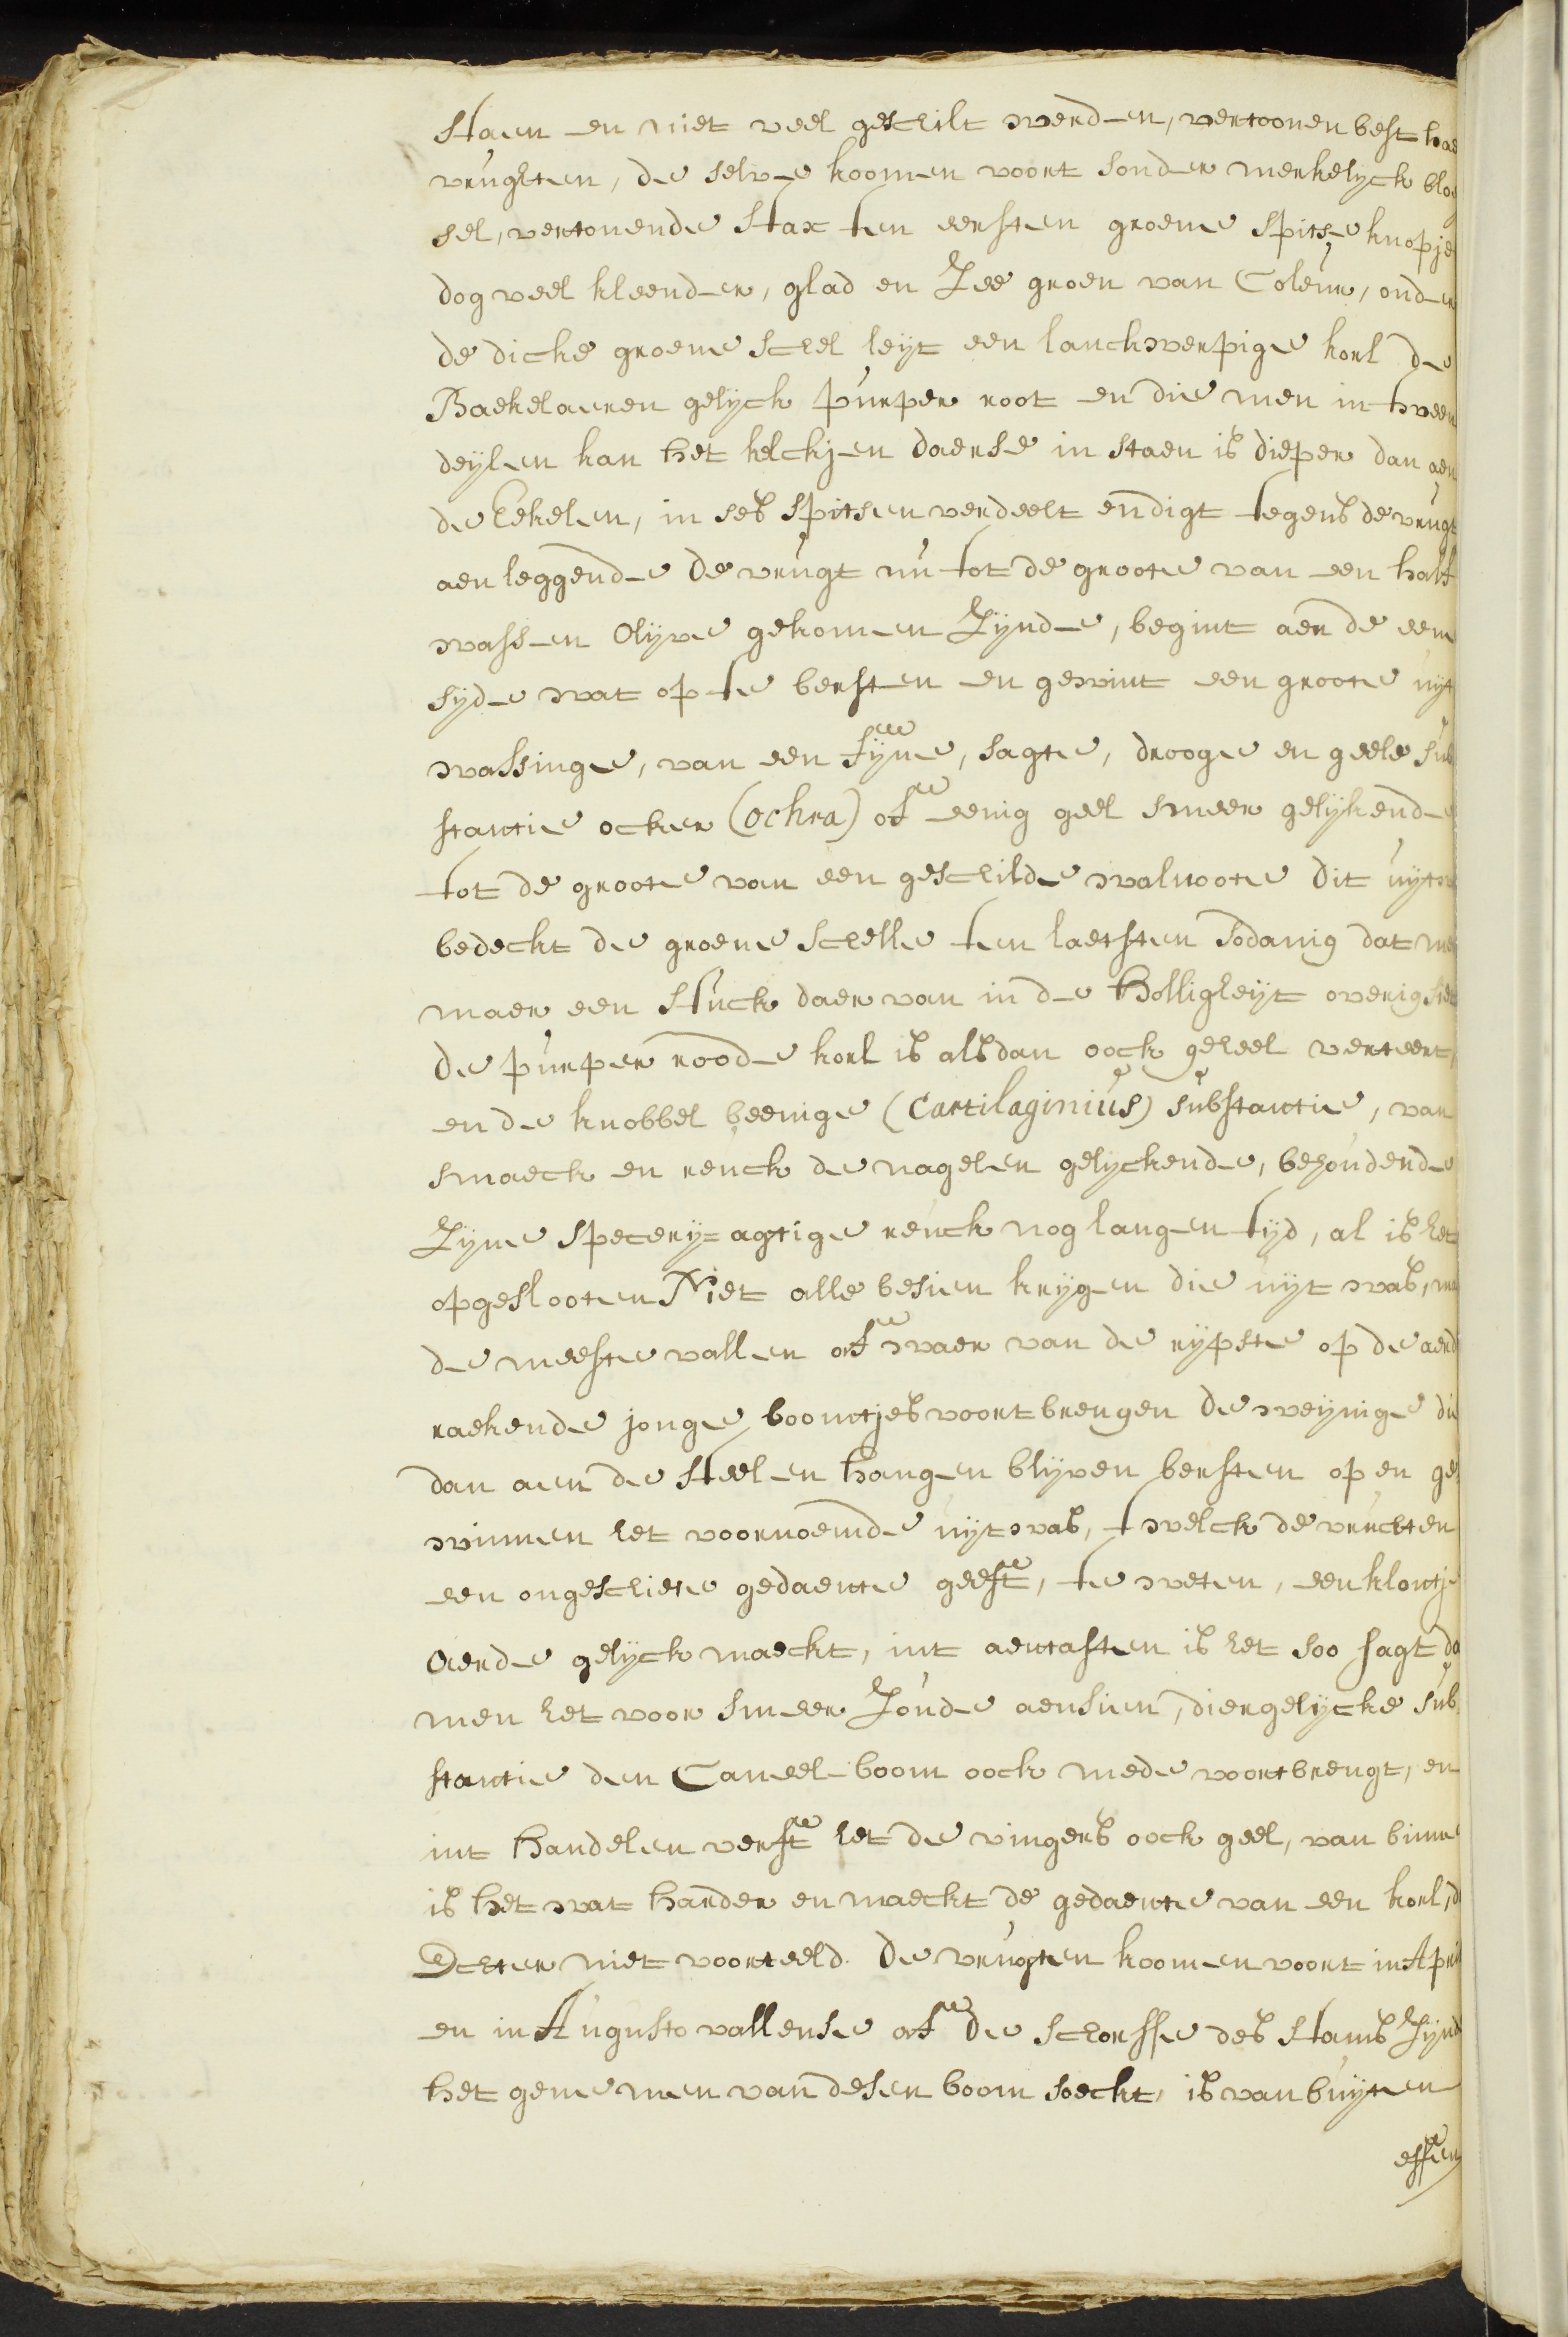 staen en niet veel geschilt werden, vertoonen best hae
vrughten, de selve koomen voort sonder merkelyck bloe
sel, vertonende stax ten eersten groene spitse knopje
dog veel kleender, glad en Zee groen van Coleur, onder
de dicke groene schel leyt een lanckwerpige korl de
Baekelaeren gelyck purper root en die men in tween
deylen kan het kelckjen daerse in staen is dieper dan aen
de Eekelen, in ses spitsen verdeelt endigt tegens de vrugt
aen leggende De vrugt nu tot de groote van een half
wassen Olyve gekomen Zynde, begint aen de eene
syde wat op te bersten en gewint een groote uyt
wassinge, van een fyne, sagte, drooge en geele sub
stantie ocker (ochra) of eenig geel smeer gelykende
tot de groote van een geschilde walnoote Dit uytw
bedeckt de groene schelle ten laetsten sodanig dat me
maer een stuck daer van in de holligheyt overig siet
De purper roode korl is alsdan oock geheel verteert,
en de knobbel beenige (Cartilaginius) substantie, van
smaeck en reuck de nagelen gelyckende, behoudende
Zyne specery=agtige reuck nog langen tyd, al is het
opgeslooten Niet alle besien krygen die uyt was, ma
de meeste vallen of waer van de rypste op de aerd
raekende jonge boomtjes voortbrengen De weynige die
dan aen de steelen hangen blyven bersten op en ge
winnen het voornoemde uytwas, t welck de vruchten
een ongeschiete gedaente geeft, te weten, een klontje
aerde gelyck maeckt, int aentasten is het soo sagt da
men het voor smeer Zoude aensien, diergelycke sub
stantie den Caneel-boom oock mede voortbrengt, en
int handelen verft het de vingers oock geel, van binne
is het wat harder en maeckt de gedaente van een korl, d
Echter niet voorteeld. De vrugten koomen voort in April
en in Augusto vallense of De schorsse des stams Zynd
het gene men van desen boom soeckt, is van buyten
effen